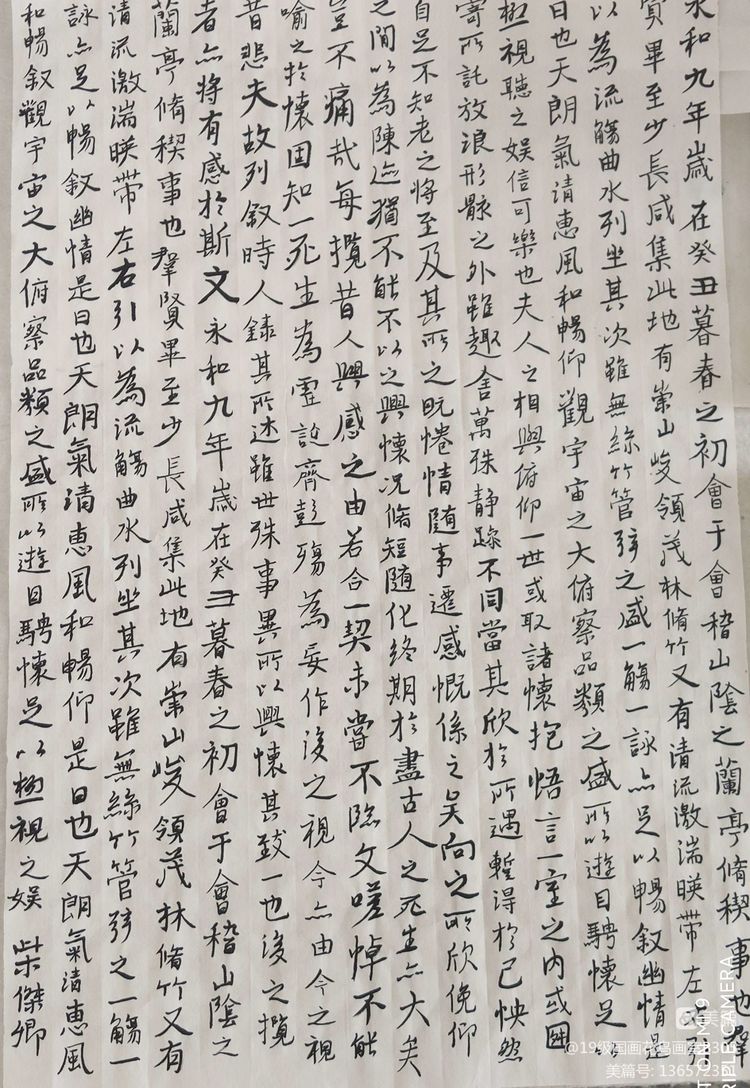 永和九年歲在癸丑暮春之初會于會稽山陰之蘭亭脩稧事也羣
賢畢至少長咸集此地有崇山峻領茂林脩竹又有清流激湍暎帶左右引
以為流觴曲水列坐其次雖無絲竹管弦之盛一觴一詠亦足以暢叙幽情是
日也天朗氣清惠風和暢仰觀宇宙之大俯察品類之盛所以遊目騁懷足以
極視聽之娛信可樂也夫人之相與俯仰一世或取諸懷抱悟言一室之內或因
寄所託放浪形骸之外雖趣舍萬殊静躁不同當其欣於所遇蹔得於己怏然
自足不知老之將至及其所之既惓情随事遷感慨係之矣向之所欣俛仰
之間以為陳迹猶不能不以之興懷况脩短随化終期於盡古人之死生亦大矣
豈不痛哉每攬昔人興感之由若合一契未嘗不臨文嗟悼不能
喻之於懷固知一死生為虛誕齊彭殤為妄作後之視今亦由今之視
昔悲夫故列叙時人錄其所述雖世殊事異所以興懷其致一也後之攬
者亦將有感於斯文永和九年歲在癸丑暮春之初會于會稽山陰之
蘭亭脩稧事也羣賢畢至少長咸集此地有崇山峻領茂林脩竹又有
清流激湍暎帶左右引以為流觴曲水列坐其次雖無絲竹管弦之一觴一
詠亦足以暢叙幽情是日也天朗氣清惠風和暢仰是日也天朗氣清惠風
和暢叙觀宇宙之大俯察品類之盛所以遊目騁懷足以極視之娛 柴傑卿
美篇号: 13657232